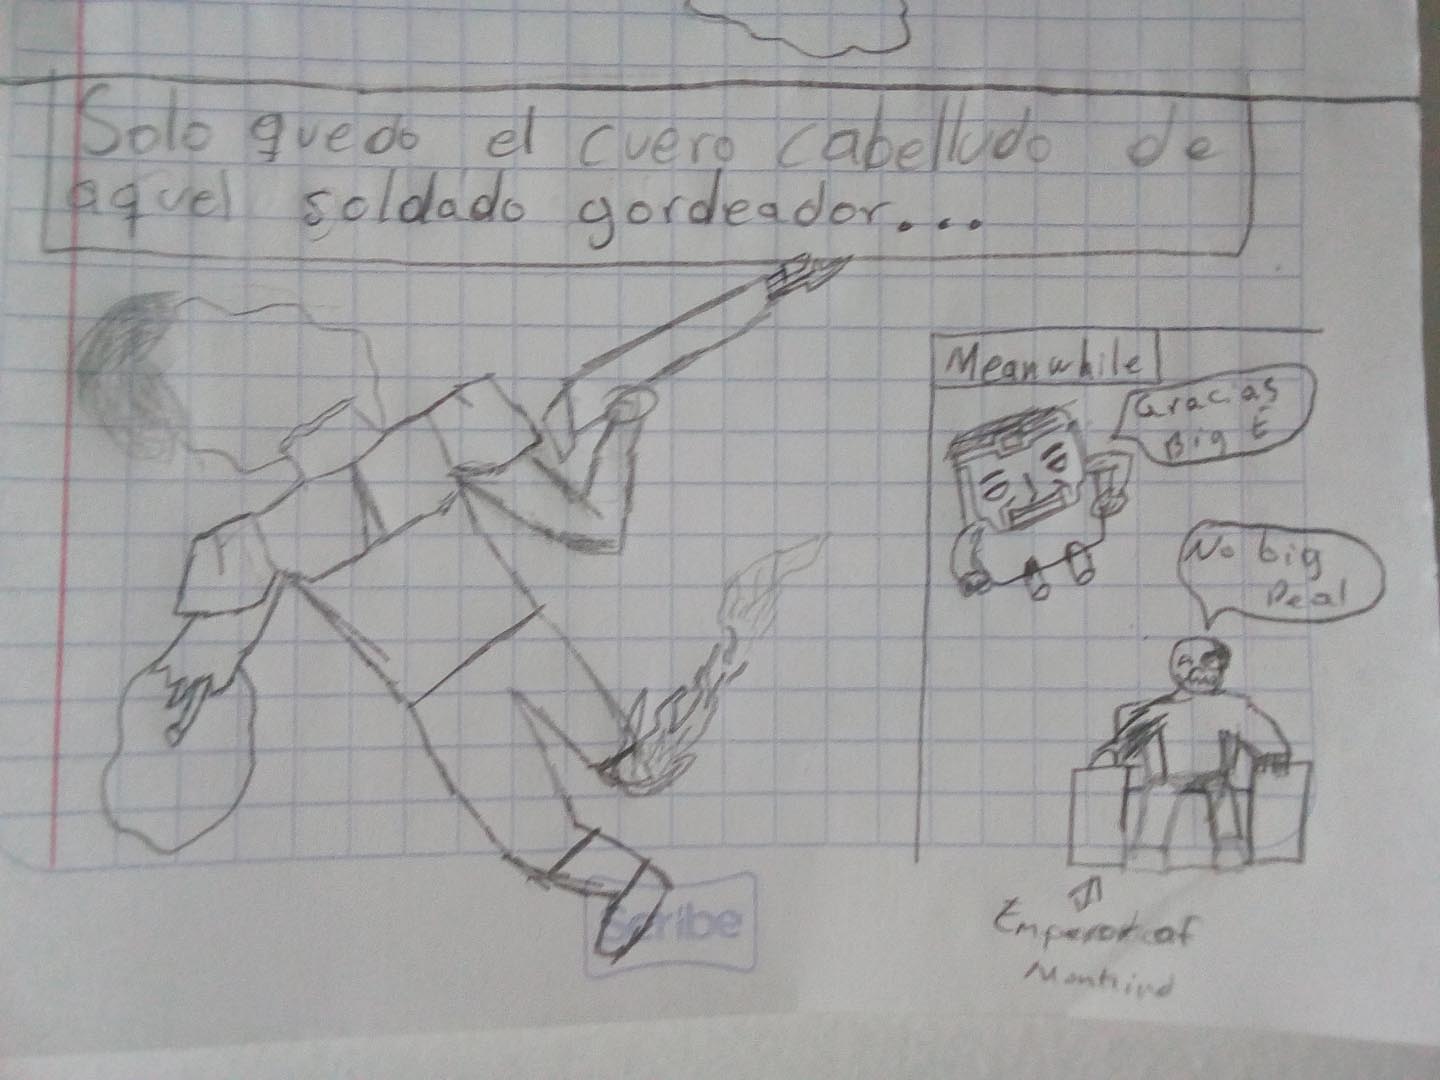 Solo quedo el cuero cabelludo de
aquel soldado gordeador...
Meanwhile
Gracias
Big E
No big
Deal
Scribe
Emperor of
Mankind